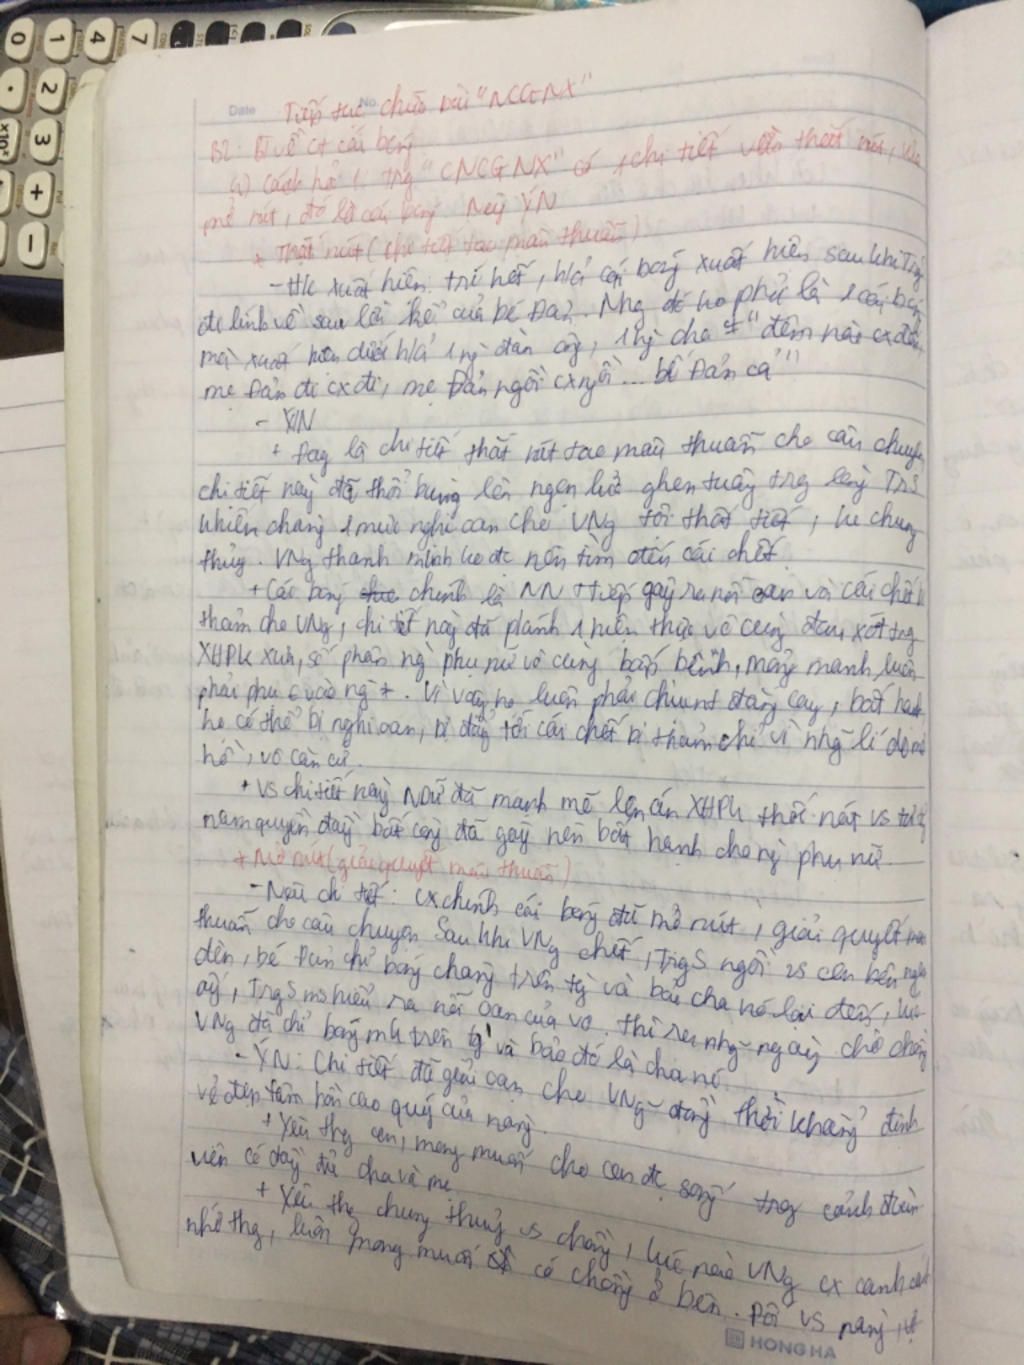 Date No.
Tiếp tục chữa bài "NCGNX"
B2: Đ về ct cái bóng
a) Cách hỏi 1: trg "CNCGNX" có 1 chi tiết vừa thắt nút, vừa
mở nút, đó là cái bóng. Nêu YN
* Thắt nút (chi tiết tạo mâu thuẫn)
- H/c xuất hiện: trc hết, h/ả cái bóng xuất hiện sau khi Trg
đi lính về sau lời kể của bé Đản. Nhg đó ko phải là 1 cái bóng
mà xuất hiện dưới h/ả 1 ng đàn ông, 1 ng cha # "đêm nào cx đến
mẹ Đản đi cx đi, mẹ Đản ngồi cx ngồi ... bế Đản cả"
- YN
+ Đây là chi tiết thắt nút tạo mâu thuẫn cho câu chuyện
chi tiết này đã thổi bùng lên ngọn lửa ghen tuông trg lòng TrS
khiến chàng 1 mực nghi oan cho VNg tội thất tiết, ko chung
thủy. VNg thanh minh ko đc nên tìm đến cái chết.
+ Cái bóng chính là NN t tiếp gây ra nỗi oan và cái chết bi
thảm cho VNg, chi tiết này đã p/ánh 1 hiện thực vô cùng đau xót trg
XHPK xưa, số phận ng phụ nữ vô cùng bấp bênh, mỏng manh, luôn
phải phụ vào ng #. Vì vậy họ luôn phải chịu đắng cay, bất hạnh
họ có thể bị nghi oan, bị đẩy tới cái chết bi thảm chỉ vì nhg lí do mơ
hồ, vô căn cứ.
+ Vs chi tiết này NDữ đã mạnh mẽ lên án XHPK thối nát vs
nam quyền đầy bất công đã gây nên bất hạnh cho ng phụ nữ.
* Mở nút (giải quyết mâu thuẫn)
- Nêu chi tiết: cx chính cái bóng đã mở nút, giải quyết mâu
thuẫn cho câu chuyện. Sau khi VNg chết, TrgS ngồi vs con bên ngọn
đèn, bé Đản chỉ bóng chàng trên tg và bảo cha nó lại đến, lúc
ấy, TrgS ms hiểu ra nỗi oan của vợ. Thì ra nhg ngày chờ chồng
VNg đã chỉ bóng mk trên tg và bảo đó là cha nó.
- YN: Chi tiết đã giải oan cho VNg - đồng thời khẳng định
vẻ đẹp tâm hồn cao quý của nàng.
+ Yêu thg con, mong muốn cho con đc sống trg cảnh đoàn
viên có đầy đủ cha và mẹ
+ Yêu thg chung thủy vs chồng, lúc nào VNg cx canh cánh
nhớ thg, luôn mong muốn có chồng ở bên. Đối vs nàng,
HONG HA